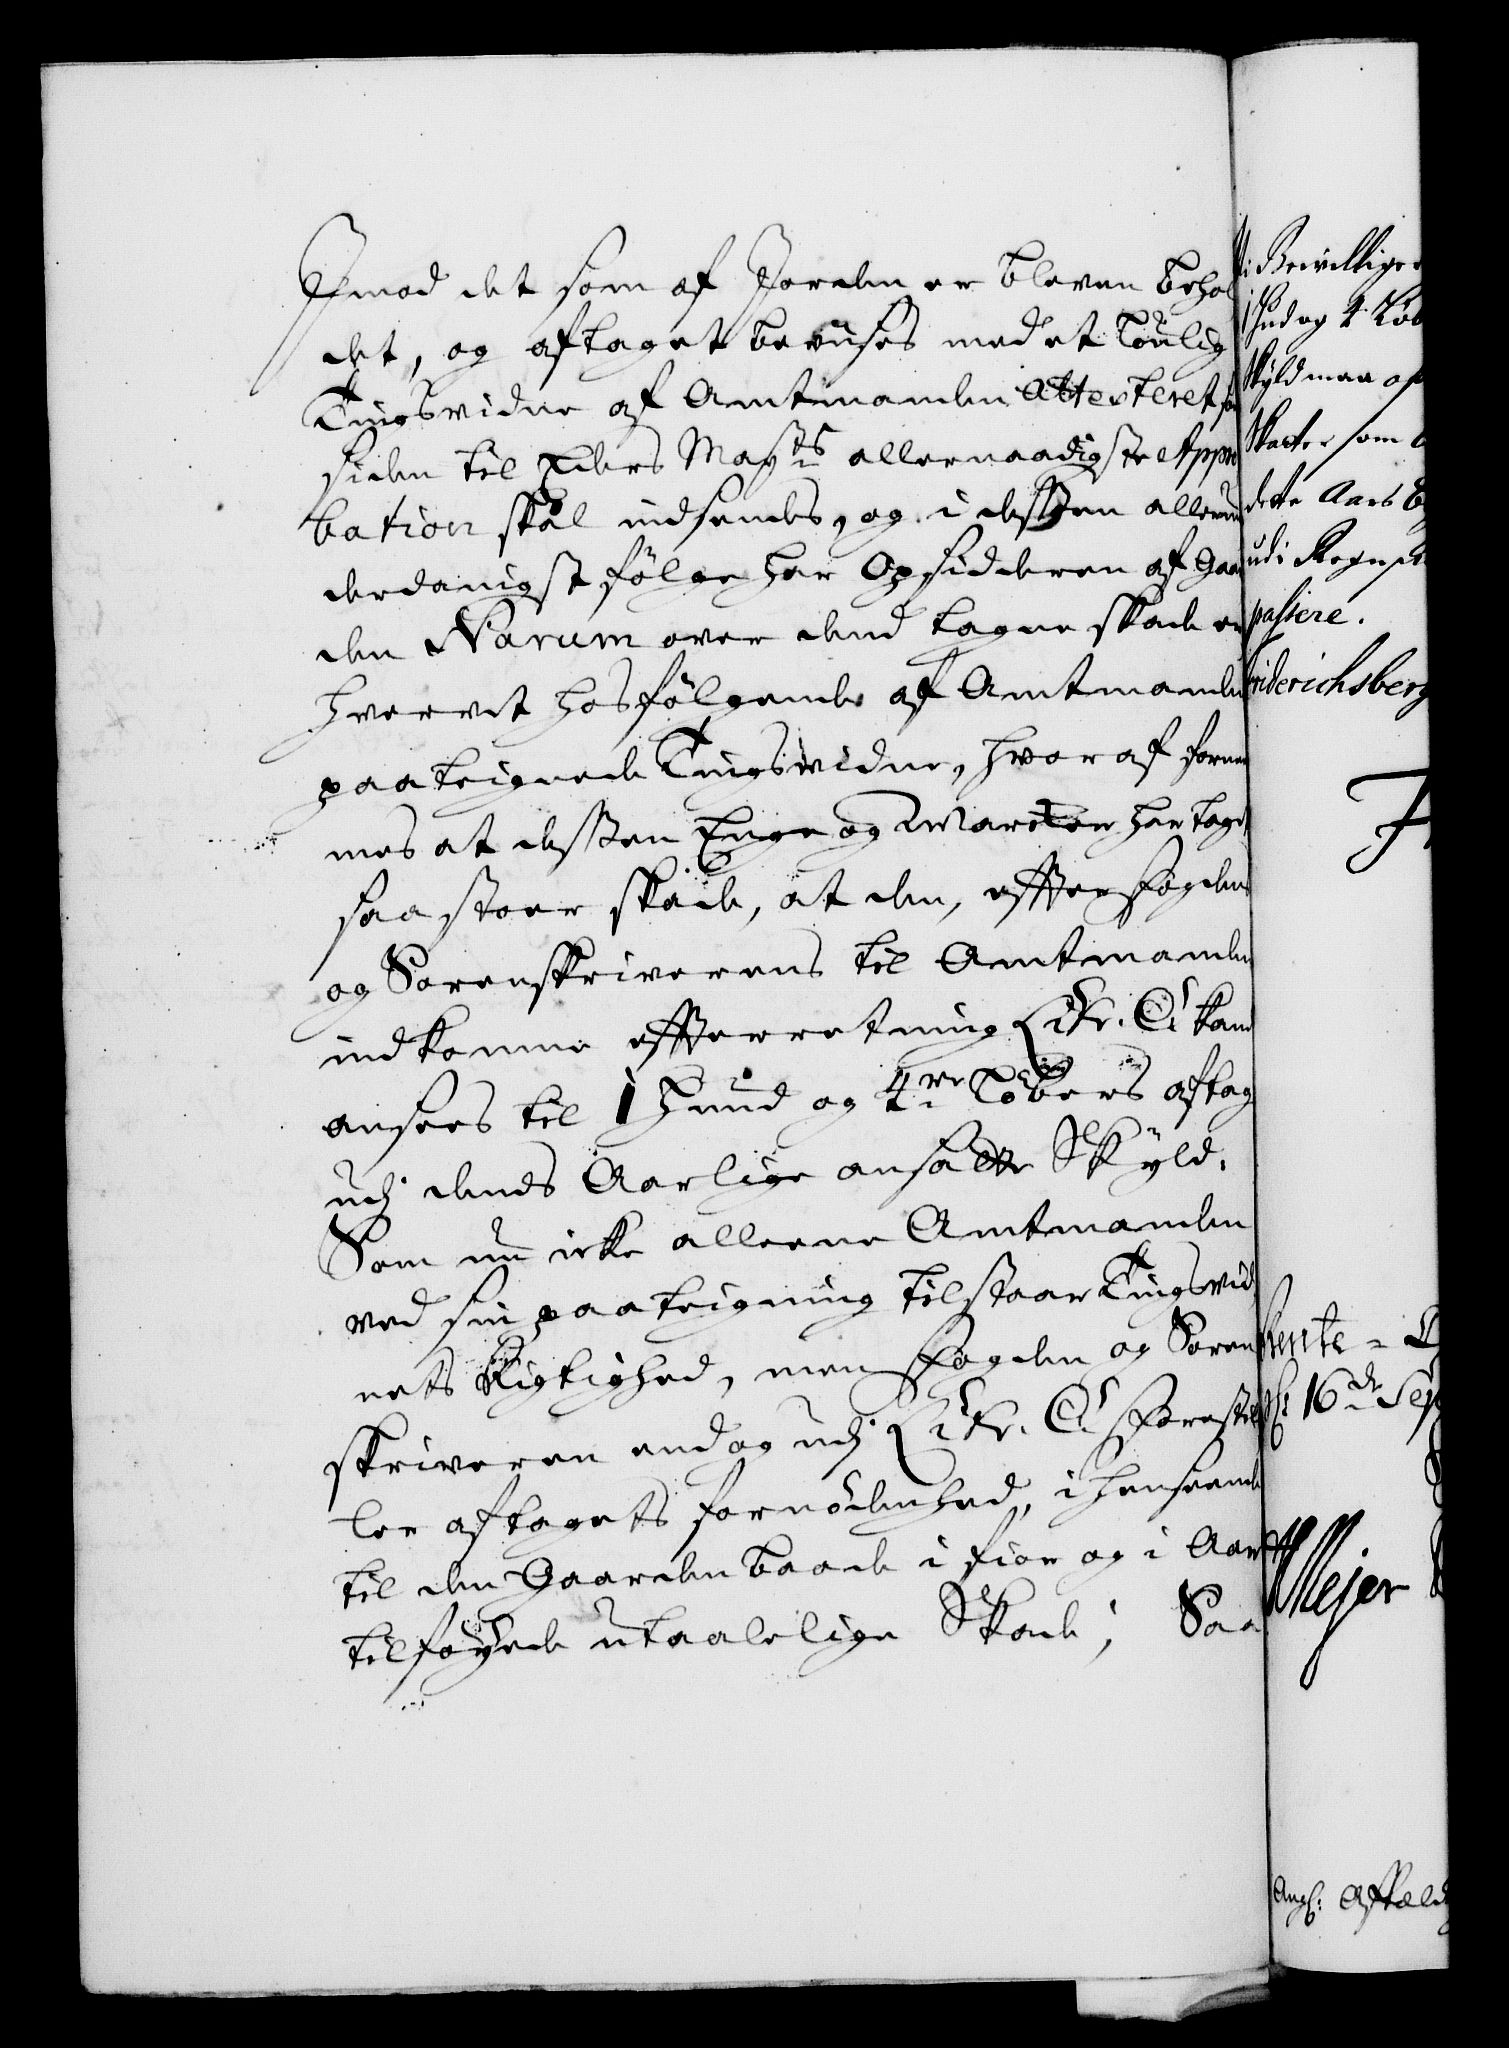 Imod det som af Jorden er bleven behol
det, og aftaget bevises med et louglig
Tingsvidne af Amtmanden Attesteret, som
siden til Eders Mayts allernaadigste Appro
bation skal indsendes, og i dessen allerun
derdanigst følge har Opsidderen af Gaar
den Narum over dend tagne skade er
hvervet hosfølgende af Amtmanden
paateignede Tingsvidne, hvoraf fornem
mes at dessen Enge og Marcker har taget
saa stoer skade, at den, effter Fogdens
og Sorenskriverens til Amtmanden
indkomne effterretning Litr. A kand
ansees til 1 Hund og 4re Løbers aftag
udj dends Aarlige ansatte Skyld.
Som nu icke alleene Amtmanden
ved sin paateigning tilstaar Tingsvid
nets Rigtighed, men Fogden og Soren
skriveren endog udj Litr. A forestil
ler aftagets fornødenhed, i henseende
til den Gaarden baade i fior og i Aar
tilføyede utaalelige Skade; Saa
Bewillige
1 Hud og 4 Løb
Skyld maa af
Skatter som
dette Aars
udi Regnsk
passere.
Friderichsberg
F
Rente = C
16de Sep
Mejer
Ang: Affæld